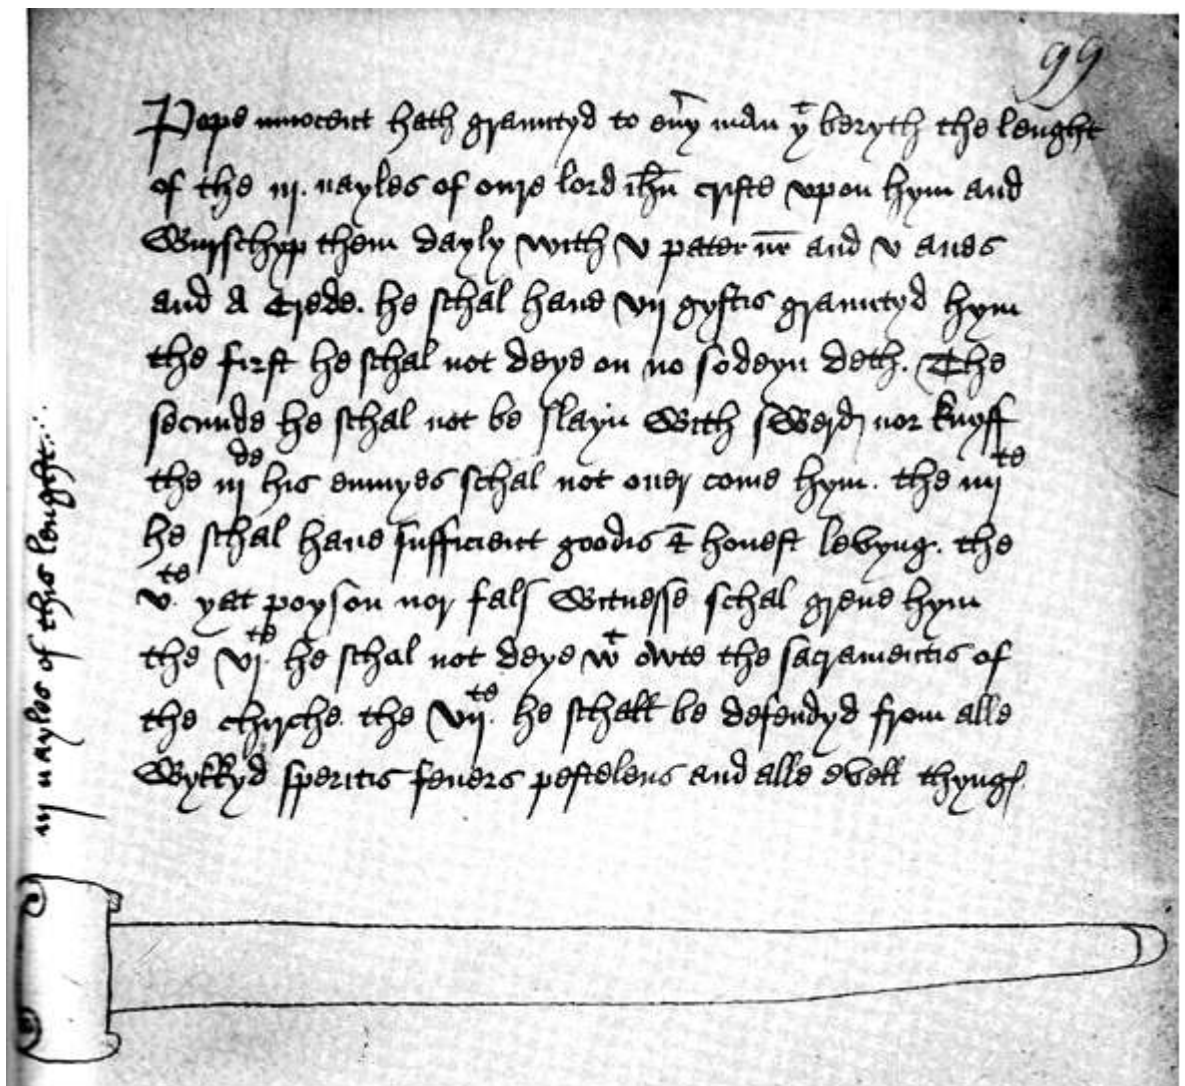 99
Pope innocent hath grauntyd to eu̅y man yᵗ beryth the lenght
of the iij. nayles of oure lord ihu̅ criste vpon hym and
Wurschyp them dayly with v pater nr̅ and v aues
and A Crede. he schal haue vij gyftis grauntyd hym
the first he schal not deye on no sodeyn deth. The
secunde he schal not be slayn With sWerd nor knyff
the iijᵈᵉ his enmyes schal not ouer come hym. the iiijᵗᵉ
he schal haue sufficient goodis & honest levyng. the
v.ᵗᵉ yat poyson nor fals Witnesse schal greue hym
the vj.ᵗᵉ he schal not deye wᵗ owte the sacramentis of
the chirche. the vij.ᵗᵉ he schall be defendyd from alle
Wykkyd speritis feuers pestelens and alle evell thyngs.
iij nayles of this lenght...